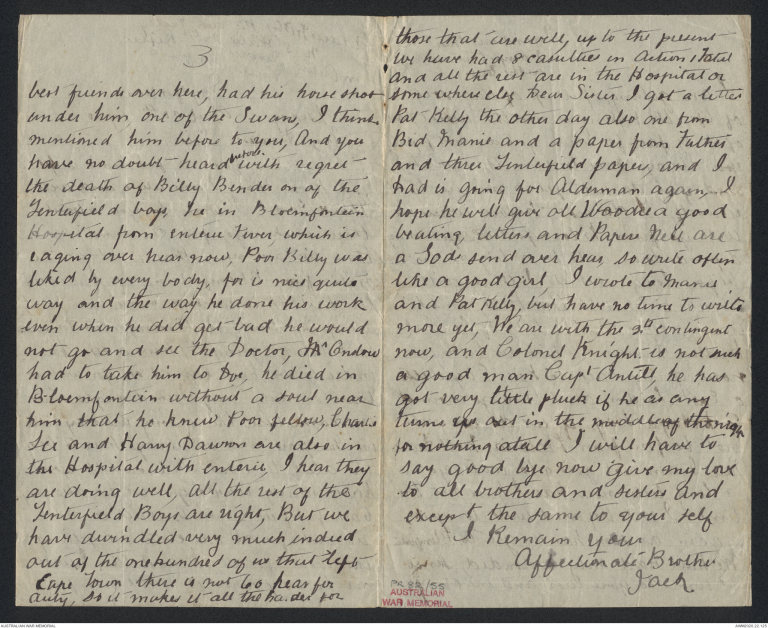 3
best friends over here, had his horse shot
under him one of the Swans, I think
mentioned him before to you, And you
have no doubt heard before with regret
the death of Billy Bender on of the
Tenterfield boys, he in Bloemfontein
Hospital from enteric Fever which is
raging over hear now, Poor Billy was
liked by every body, for is nice quite
way and the way he done his work
even when he did get bad he would
not go and see the Doctor,
had to take him to Dye, he died in
Bloemfontein without a soul near
him that he knew Poor fellow, Charlie
Lee and Harry Dawson are also in
the Hospital with enteric, I hear they
are doing well, all the rest of the
Tenterfield Boys are right, But we
have dwindled very much indeed
out of the one hundred of us that left
Cape Town there is not 60 hear for
duty, so it makes it all the harder for
those that are well, up to the present
we have had 8 casulties in Action
and all the rest are in the Hospital or
some where else, Dear Sister I got a letter
Pat Kelly the other day also one from
Bed Mamie and a paper from Father
and three Tenterfield papers, and I
had is going for Alderman again, I
hope he will give old Woods a good
beating letters and Papers Nell are
a Gods send over hear, so write often
like a good girl, I wrote to Mamie
and Pat Kelly, but have no time to write
more yet, We are with the 2nd contingent
now, and Colonel Knight is not such
a good man Capt Antill, he has
got very little pluck if he as any
turns us out in the middle of the night
for nothing atall I will have to
say good bye now give my love
to all brothers and sisters and
except the same to your self
I Remain your
Affectionate Brother
Jack
PR 88/55
AUSTRALIAN
WAR MEMORIAL
AUSTRALIAN WAR MEMORIAL
AWM2020.22.125